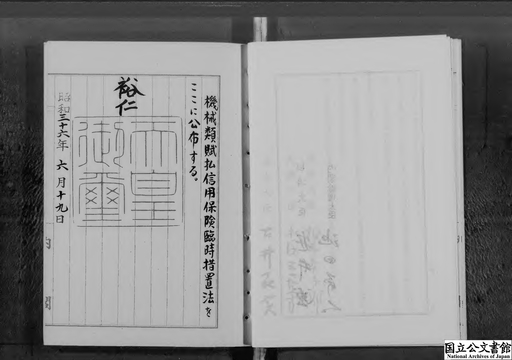 機械類賦払信用保険臨時措置法を
ここに公布する。
裕仁
天皇
御璽
昭和三十六年六月十九日
内閣
国立公文書館
National Archives of Japan